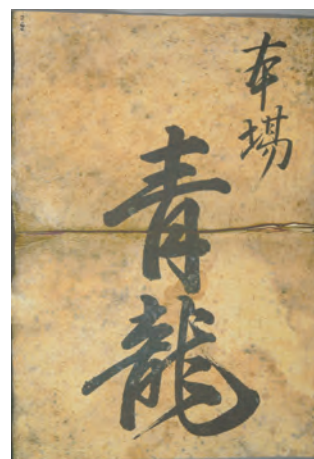 本場
青龍